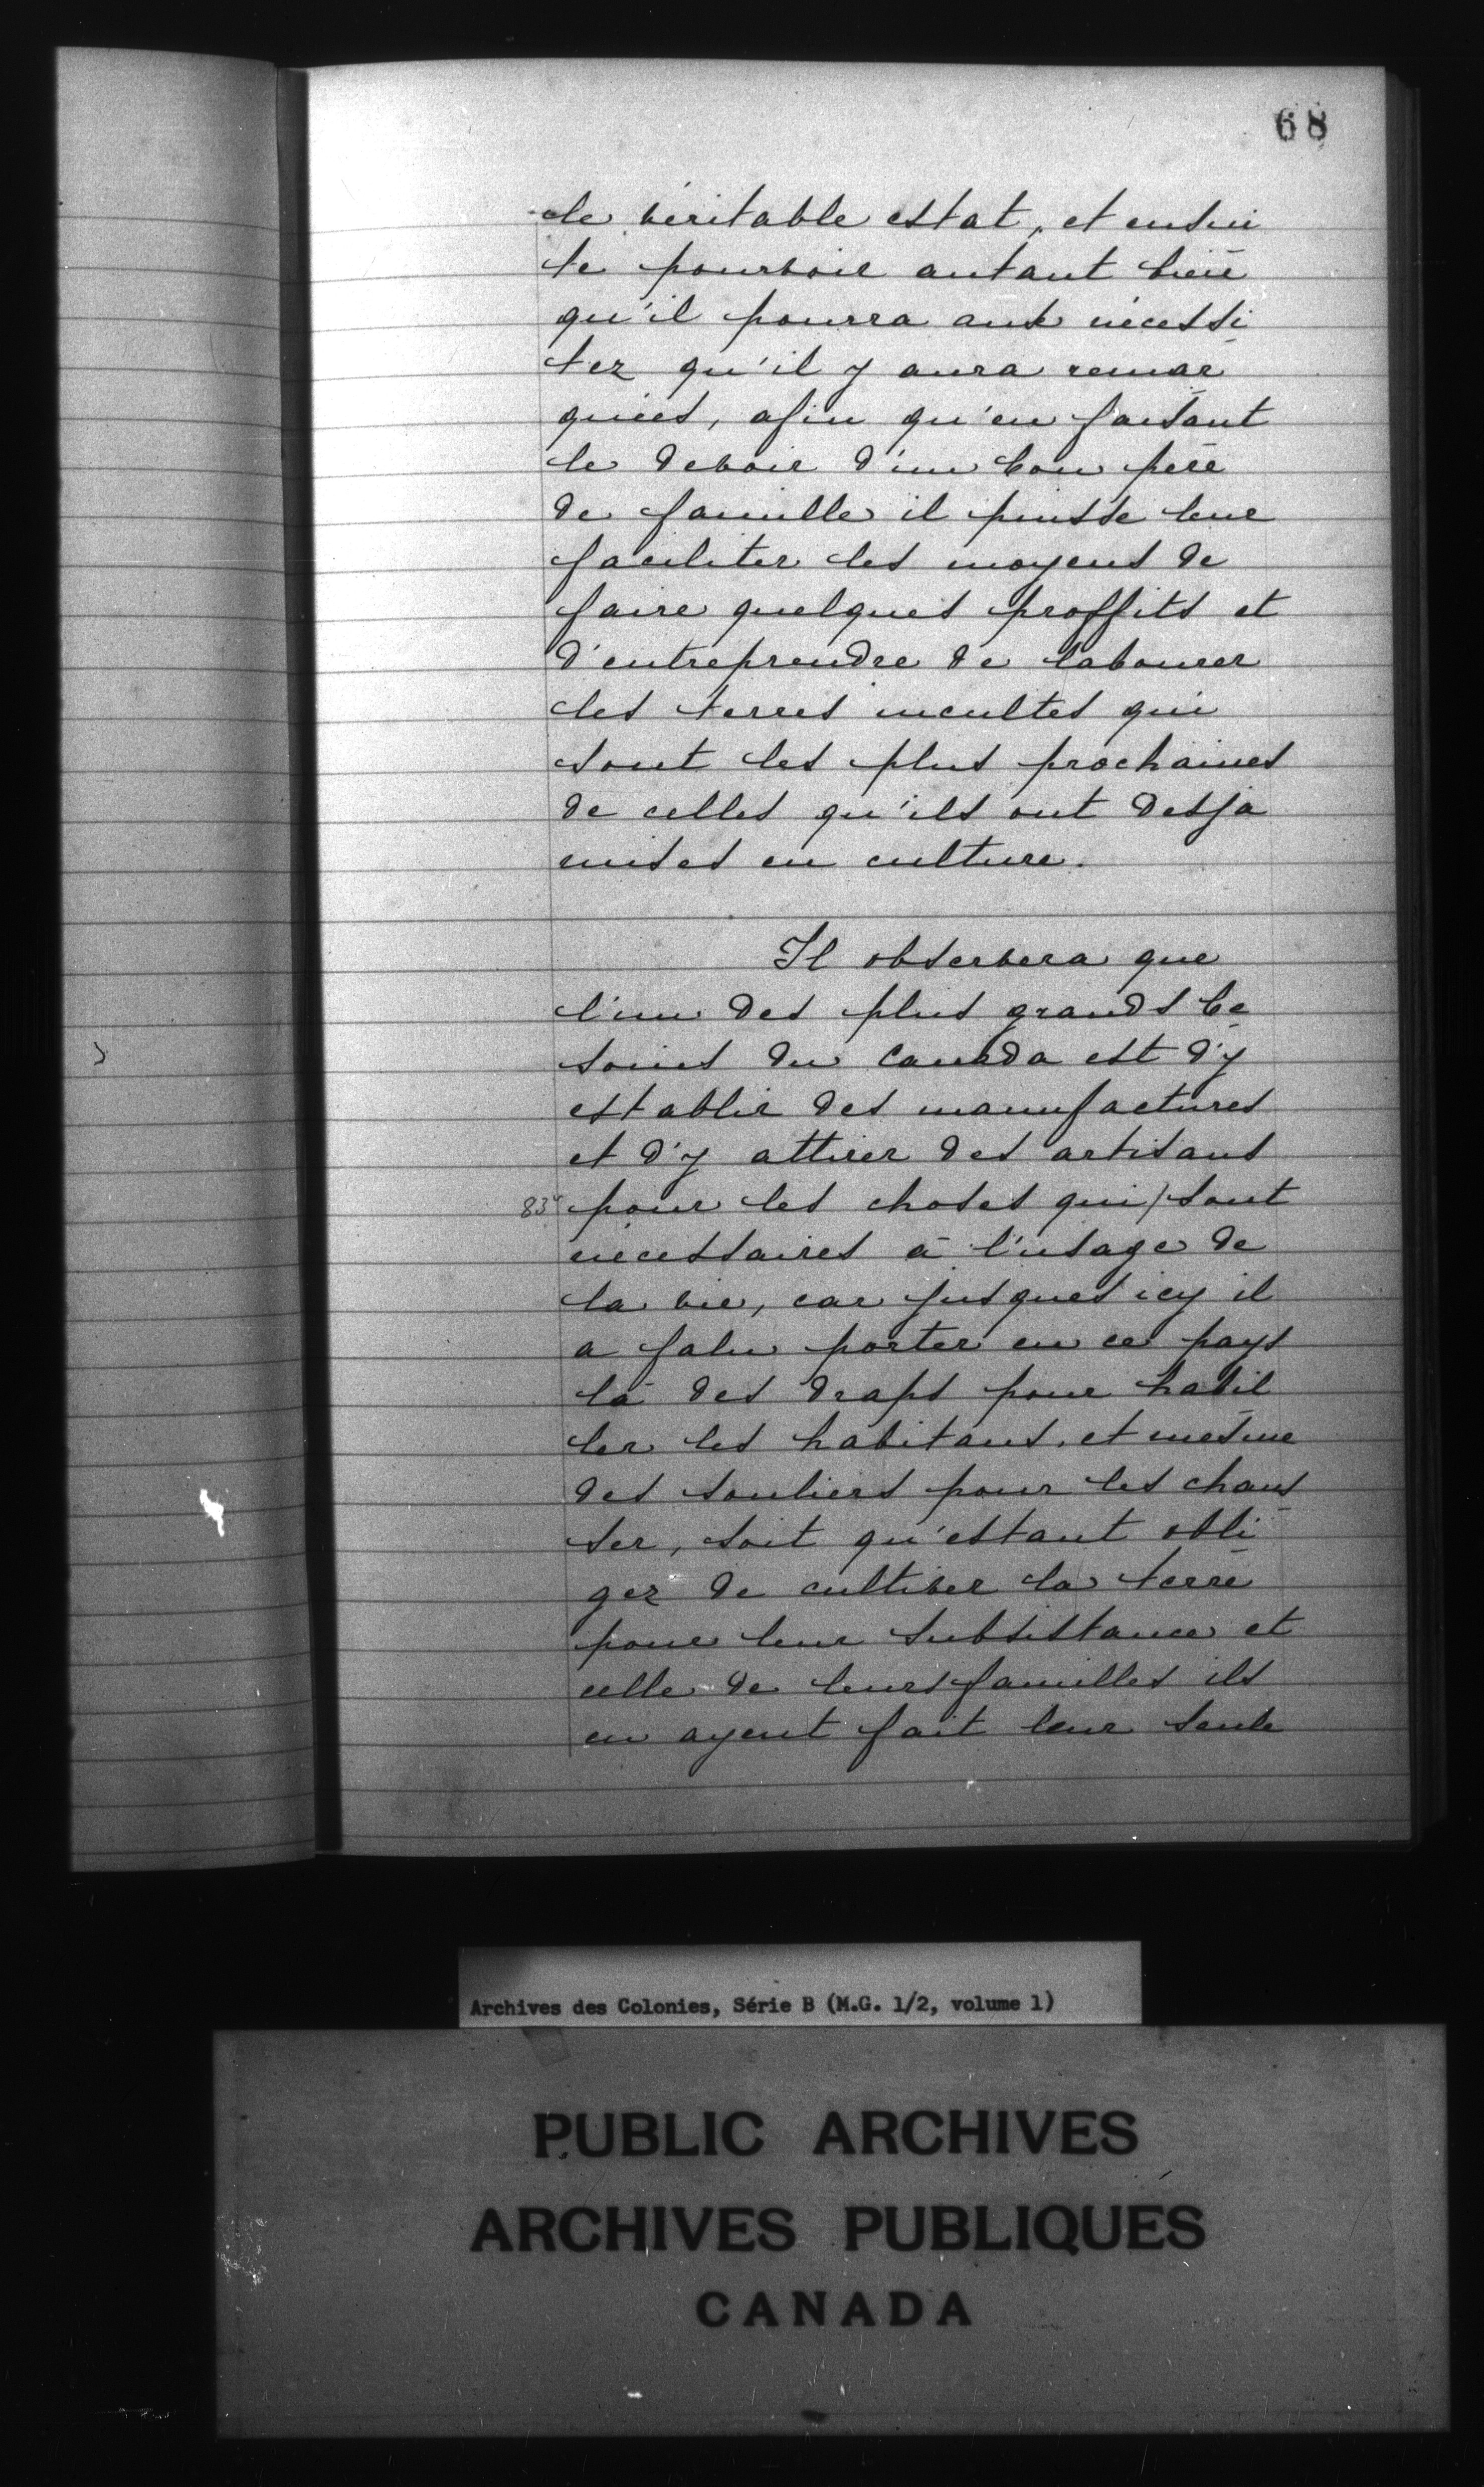 68
le véritable estat, et ensui
te pourvoir autant bien
qu'il pourra aux nécessi
tez qu'il y aura remar
quées, afin qu'en faisant
le devoir d'un bon père
de famille il puisse leur
faciliter les moyens de
faire quelques proffits et
d'entreprendre de labourer
les terres incultes qui
sont les plus prochaines
de celles qu'ils ont desja
mises en culture.
Il observera que
l'un des plus grands be
soins du Canada est d'y
establir des manufactures
et d'y attirer des artisans
83v pour les choses qui / sont
nécessaires à l'usage de
la vie, car jusques icy il
a falu porter en ce pays
là des draps pour habil
ler les habitans, et mesme
des souliers pour les chaus
ser, soit qu'estant obli
gez de cultiver la terre
pour leur subsistance et
celle de leurs familles ils
en ayent fait leur seule
Archives des Colonies, Série B (M.G. 1/2, volume 1)
PUBLIC ARCHIVES
ARCHIVES PUBLIQUES
CANADA